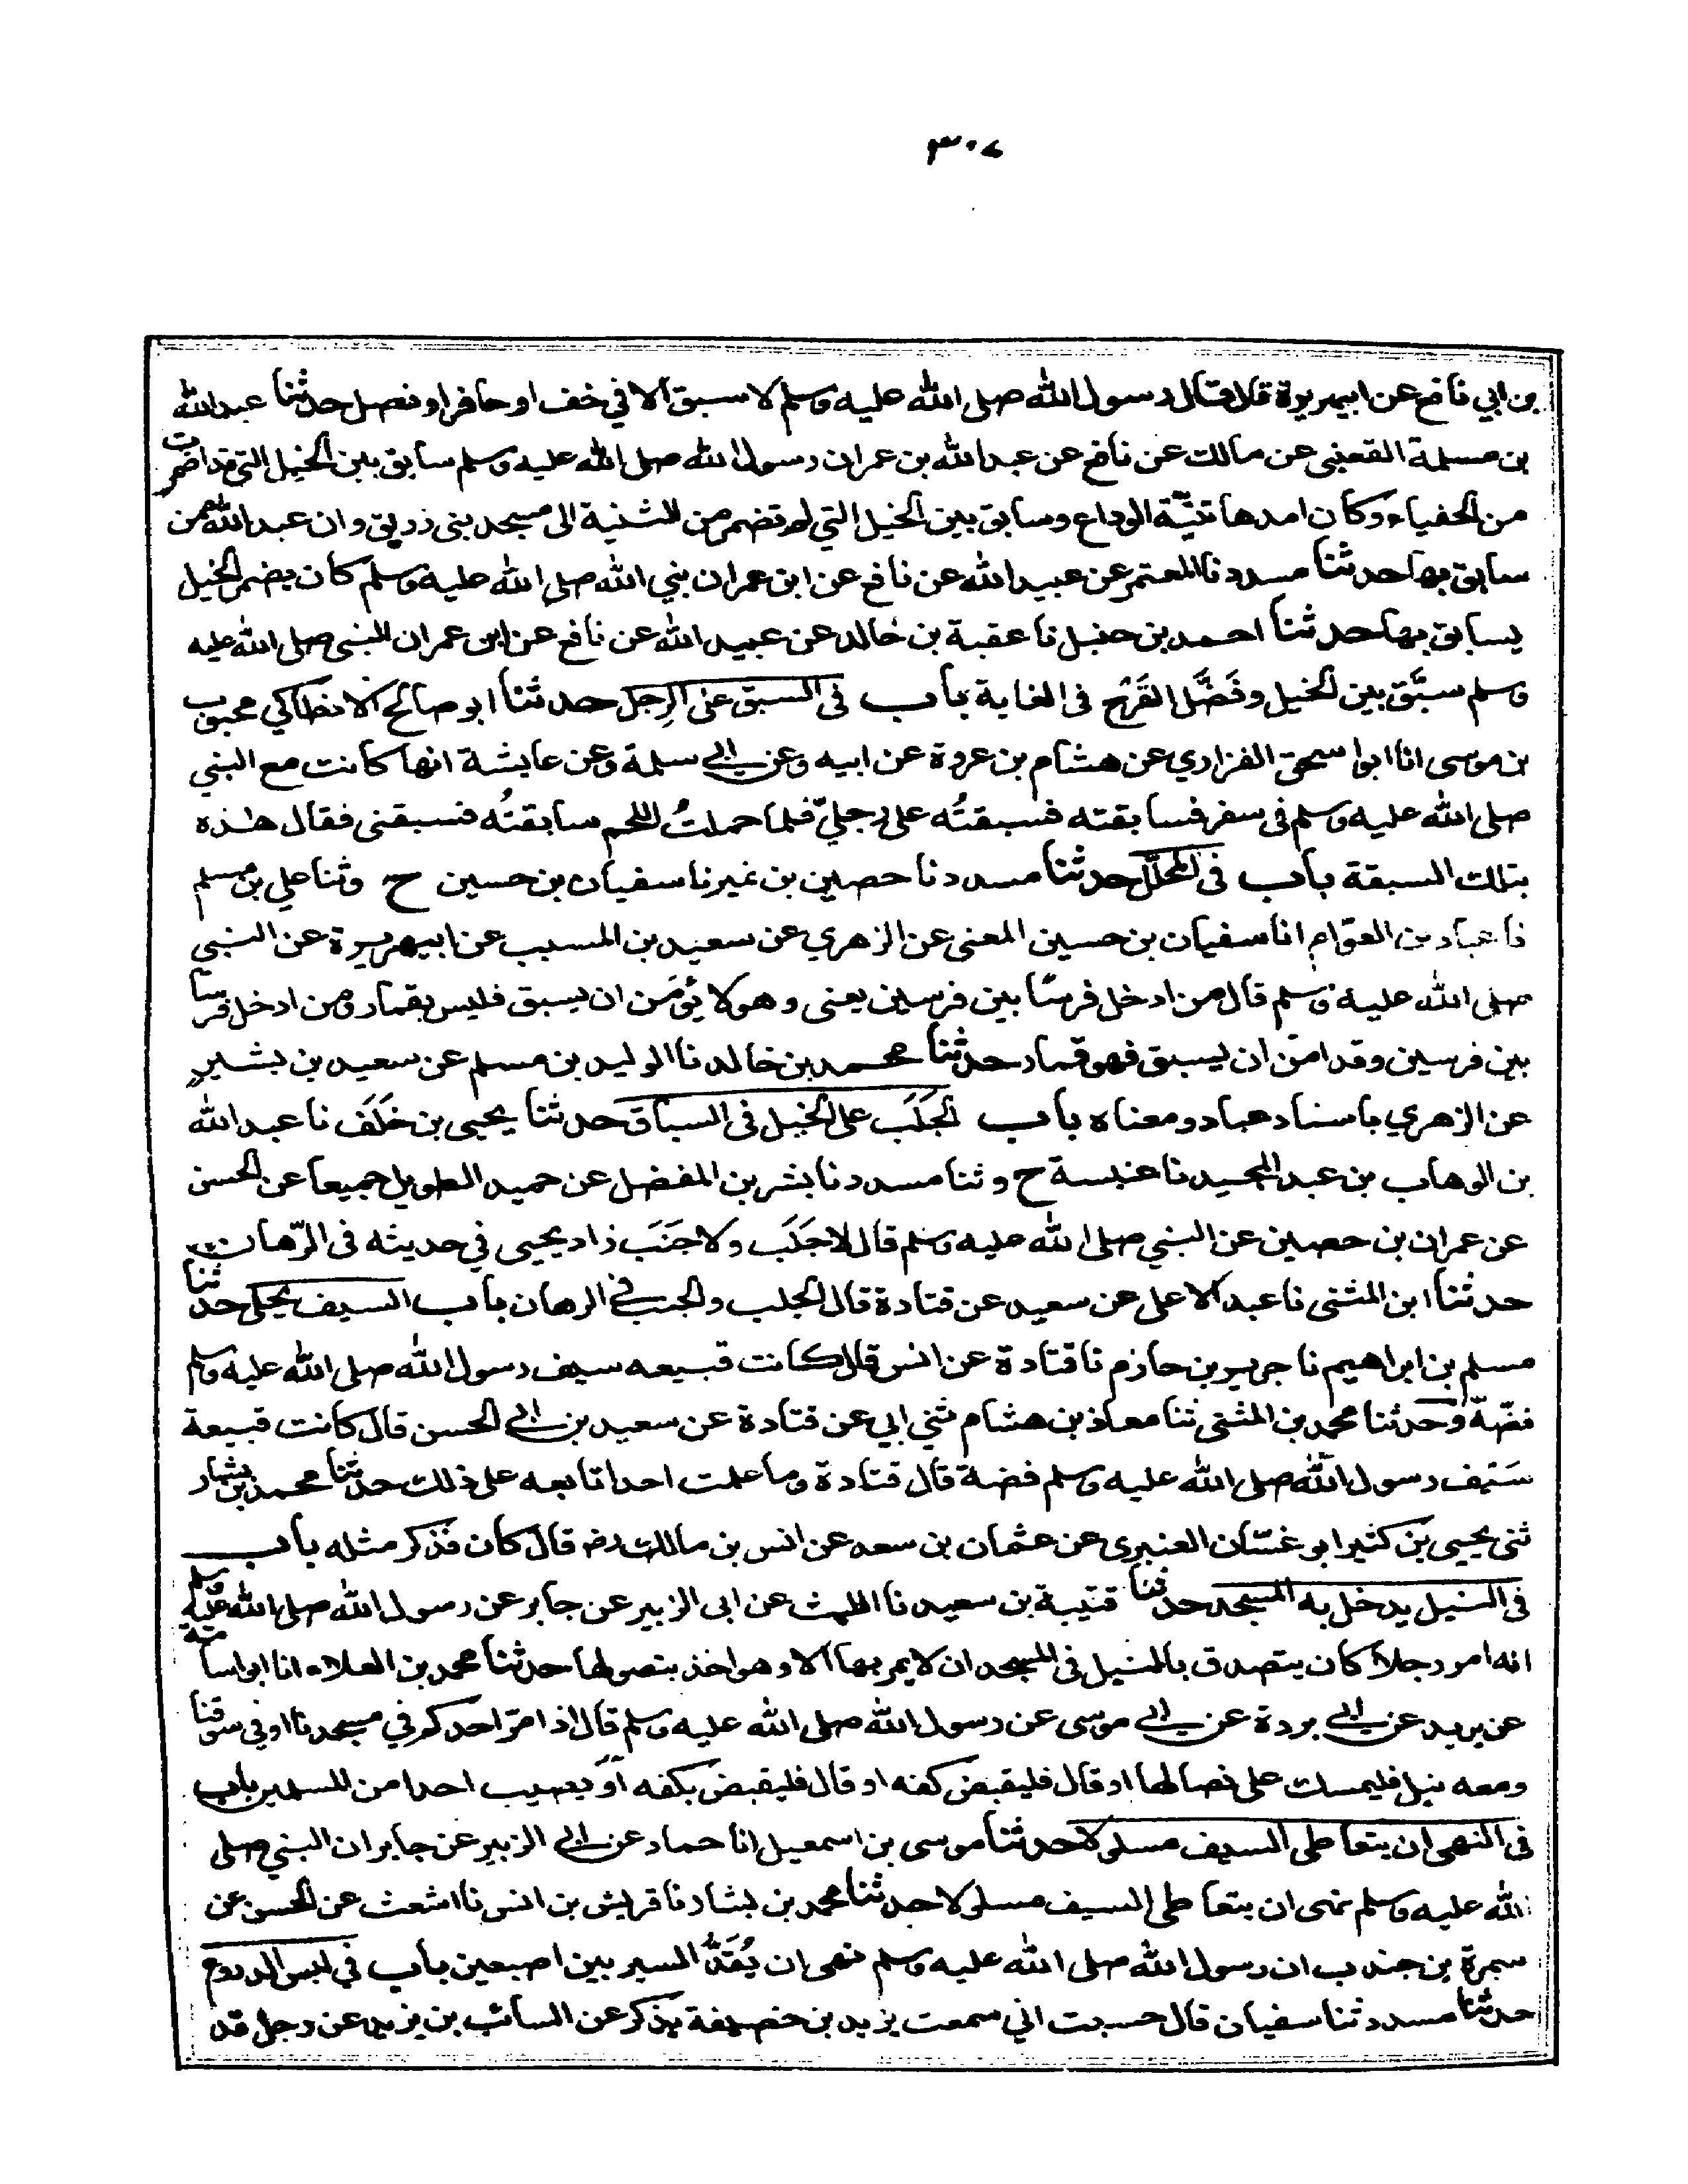 ٣٠٧
بن ابي نافع عن ابيهريرة قال قال رسول الله صلى الله عليه وسلم لا سبق الا في خف او حافر او نصل حدثنا عبد الله
بن مسلمة القعنبى عن مالك عن نافع عن عبد الله بن عمر ان رسول الله صلى الله عليه وسلم سابق بين الخيل التي قد اضمرت
من الحفياء وكان امدها ثنيّة الوداع وسابق بين الخيل التي لم تضمر من الثنية الى مسجد بنى زريق وان عبد الله ممن
سابق بها حدثنا مسدد نا المعتمر عن عبيد الله عن نافع عن ابن عمر ان نبي الله صلى الله عليه وسلم كان يضمر الخيل
يسابق بها حدثنا احمد بن حنبل نا عقبة بن خالد عن عبيد الله عن نافع عن ابن عمر ان النبى صلى الله عليه
وسلم سبَّق بين الخيل وفَضَّل القَرَّح فى الغاية باب فى السبق على الرِجل حدثنا ابو صالح الانطاكي محبوب
بن موسى انا ابوا سحق الفزاري عن هشام بن عروة عن ابيه وعن ابي سلمة وعن عايشة انها كانت مع النبي
صلى الله عليه وسلم فى سفر فسابقته فسبقتُه على رجليّ فلما حملتُ اللحم سابقتُه فسبقنى فقال هذه
بتلك السبقة باب فى المحلّل حدثنا مسدد نا حصين بن نمير نا سفيان بن حسين ح وثنا علي بن مسلم
نا عباد بن العوّام انا سفيان بن حسين المعنى عن الزهري عن سعيد بن المسيب عن ابيهريرة عن النبى
صلى الله عليه وسلم قال من ادخل فرسًا بين فرسين يعنى وهو لا يؤمَن ان يسبق فليس بقمار ومن ادخل فرسا
بين فرسين وقد امن ان يسبق فهو قمار حدثنا محمد بن خالد نا الوليد بن مسلم عن سعيد بن بشيرٍ
عن الزهري باسناد عباد ومعناه باب الجَلَب على الخيل فى السباق حدثنا يحيى بن خَلَف نا عبد الله
بن الوهاب بن عبد المجيد نا عنبسة ح وثنا مسدد نا بشر بن المفضل عن حميد الطويل جميعا عن الحسن
عن عمران بن حصين عن النبي صلى الله عليه وسلم قال لا جَلَب ولا جَنَبَ زاد يحيى في حديثه فى الرّهان
حدثنا ابن المثنى نا عبد الاعلى عن سعيد عن قتادة قال الجلب والجنب في الرهان باب السيف يحلى حدثنا
مسلم بن ابراهيم نا جرير بن حازم نا قتادة عن انس قال كانت قبيعه سيف رسول الله صلى الله عليه وسلم
فضّة وحدثنا محمد بن المثنى ثنا معاذ بن هشام ثني ابي عن قتادة عن سعيد بن ابي الحسن قال كانت قبيعة
سَيف رسول الله صلى الله عليه وسلم فضة قال قتادة وما علمت احدا تابعه على ذلك حدثنا محمد بن بشار
ثنى يحيى بن كثير ابو غسّان العنبري عن عثمان بن سعد عن انس بن مالك رض قال كان فذكر مثله باب
فى النبل يدخل به المسجد حدثنا قتيبة بن سعيد نا الليث عن ابى الزبير عن جابر عن رسول الله صلى الله عليه وسلم
انه امر رجلا كان يتصدق بالنبل فى المسجد ان لا يمر بها الا وهو اخذ بنصولها حدثنا محمد بن العلاء انا ابو اسامة
عن بريد عن ابي بردة عن ابي موسى عن رسول الله صلى الله عليه وسلم قال اذا مرّ احدكم في مسجدنا او في سوقنا
ومعه نبل فليمسك على نصالها او قال فليقبض كفه او قال فليقبض بكفه او يصيب احدا من المسلمين باب
فى النهى ان يتعاطى السيف مسلولا حدثنا موسى بن اسمعيل انا حماد عن ابي الزبير عن جابر ان النبي صلى
الله عليه وسلم نهى ان يتعاطى السيف مسلولا حدثنا محمد بن بشار نا قريش بن انس نا اشعث عن الحسن عن
سمرة بن جندب ان رسول الله صلى الله عليه وسلم نهى ان يُقَدَّ السير بين اصبعين باب في لبس الدروع
حدثنا مسدد ثنا سفيان قال حسبت اني سمعت يزيد بن خصيفة يذكر عن السائب بن يزيد عن رجل قد